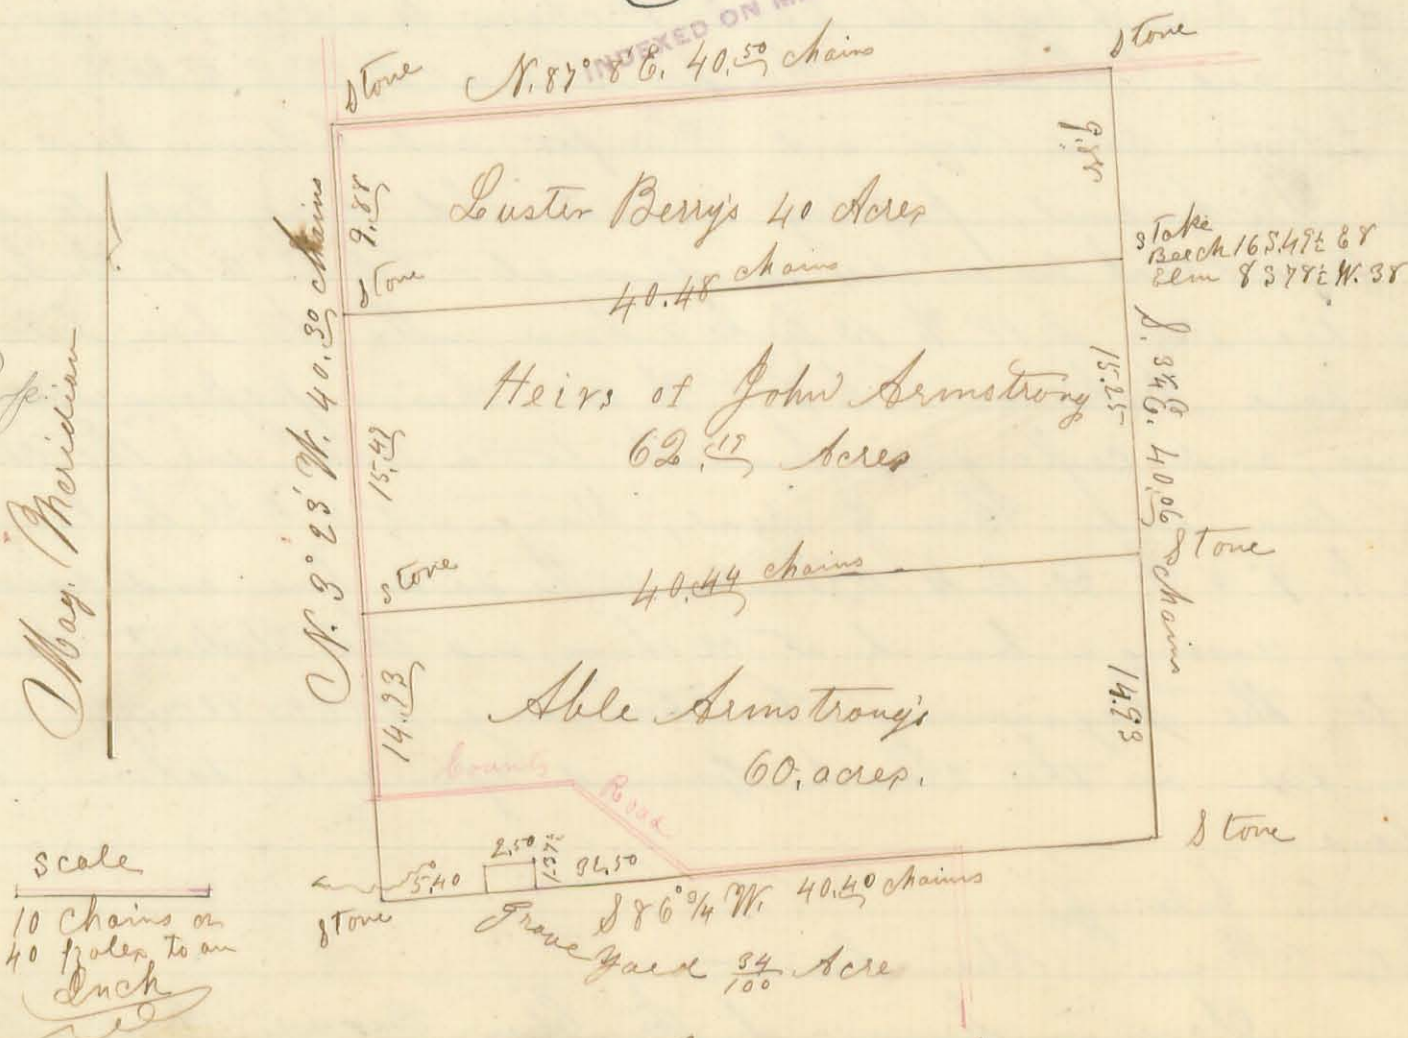 INDEXED ON
Stone N. 87° 8' E. 40.50 chains Stone
9.88
9.88
Luster Berry's 40 Acres
Stake
Beech 16 S. 49½ E 8
Elm 8 S 78½ W. 38
Stone
40.48 chains
N. 3° 23' W. 40.30 chains
Mag. Meridian
Heirs of John Armstrong
62.19 Acres
15.25
15.49
S. 3¾ E. 40.06 chains
Stone
Stone
40.44 chains
Able Armstrong's
60. acres.
14.93
14.93
County Road
Stone
2.50
1.37½
5.40
32.50
Stone
S 86°¾ W. 40.40 chains
Grave Yard 34/100 Acre
Scale
10 Chains or
40 poles to an
Inch